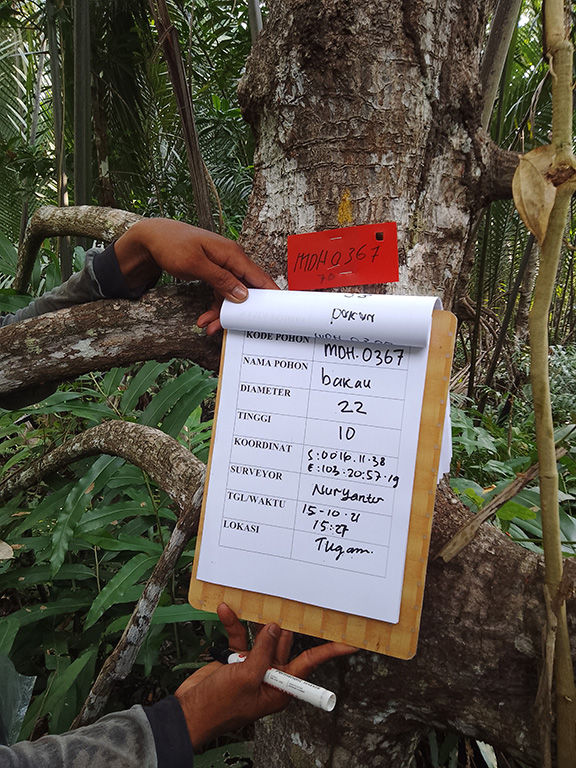 MDH.0367
70
KODE POHON MDH.0367
NAMA POHON bakau
DIAMETER 22
TINGGI 10
KOORDINAT S:0016.11.38
E:103.20.57.19
SURVEYOR Nuryanto
TGL/WAKTU 15-10-21
15:27
LOKASI Tugam.